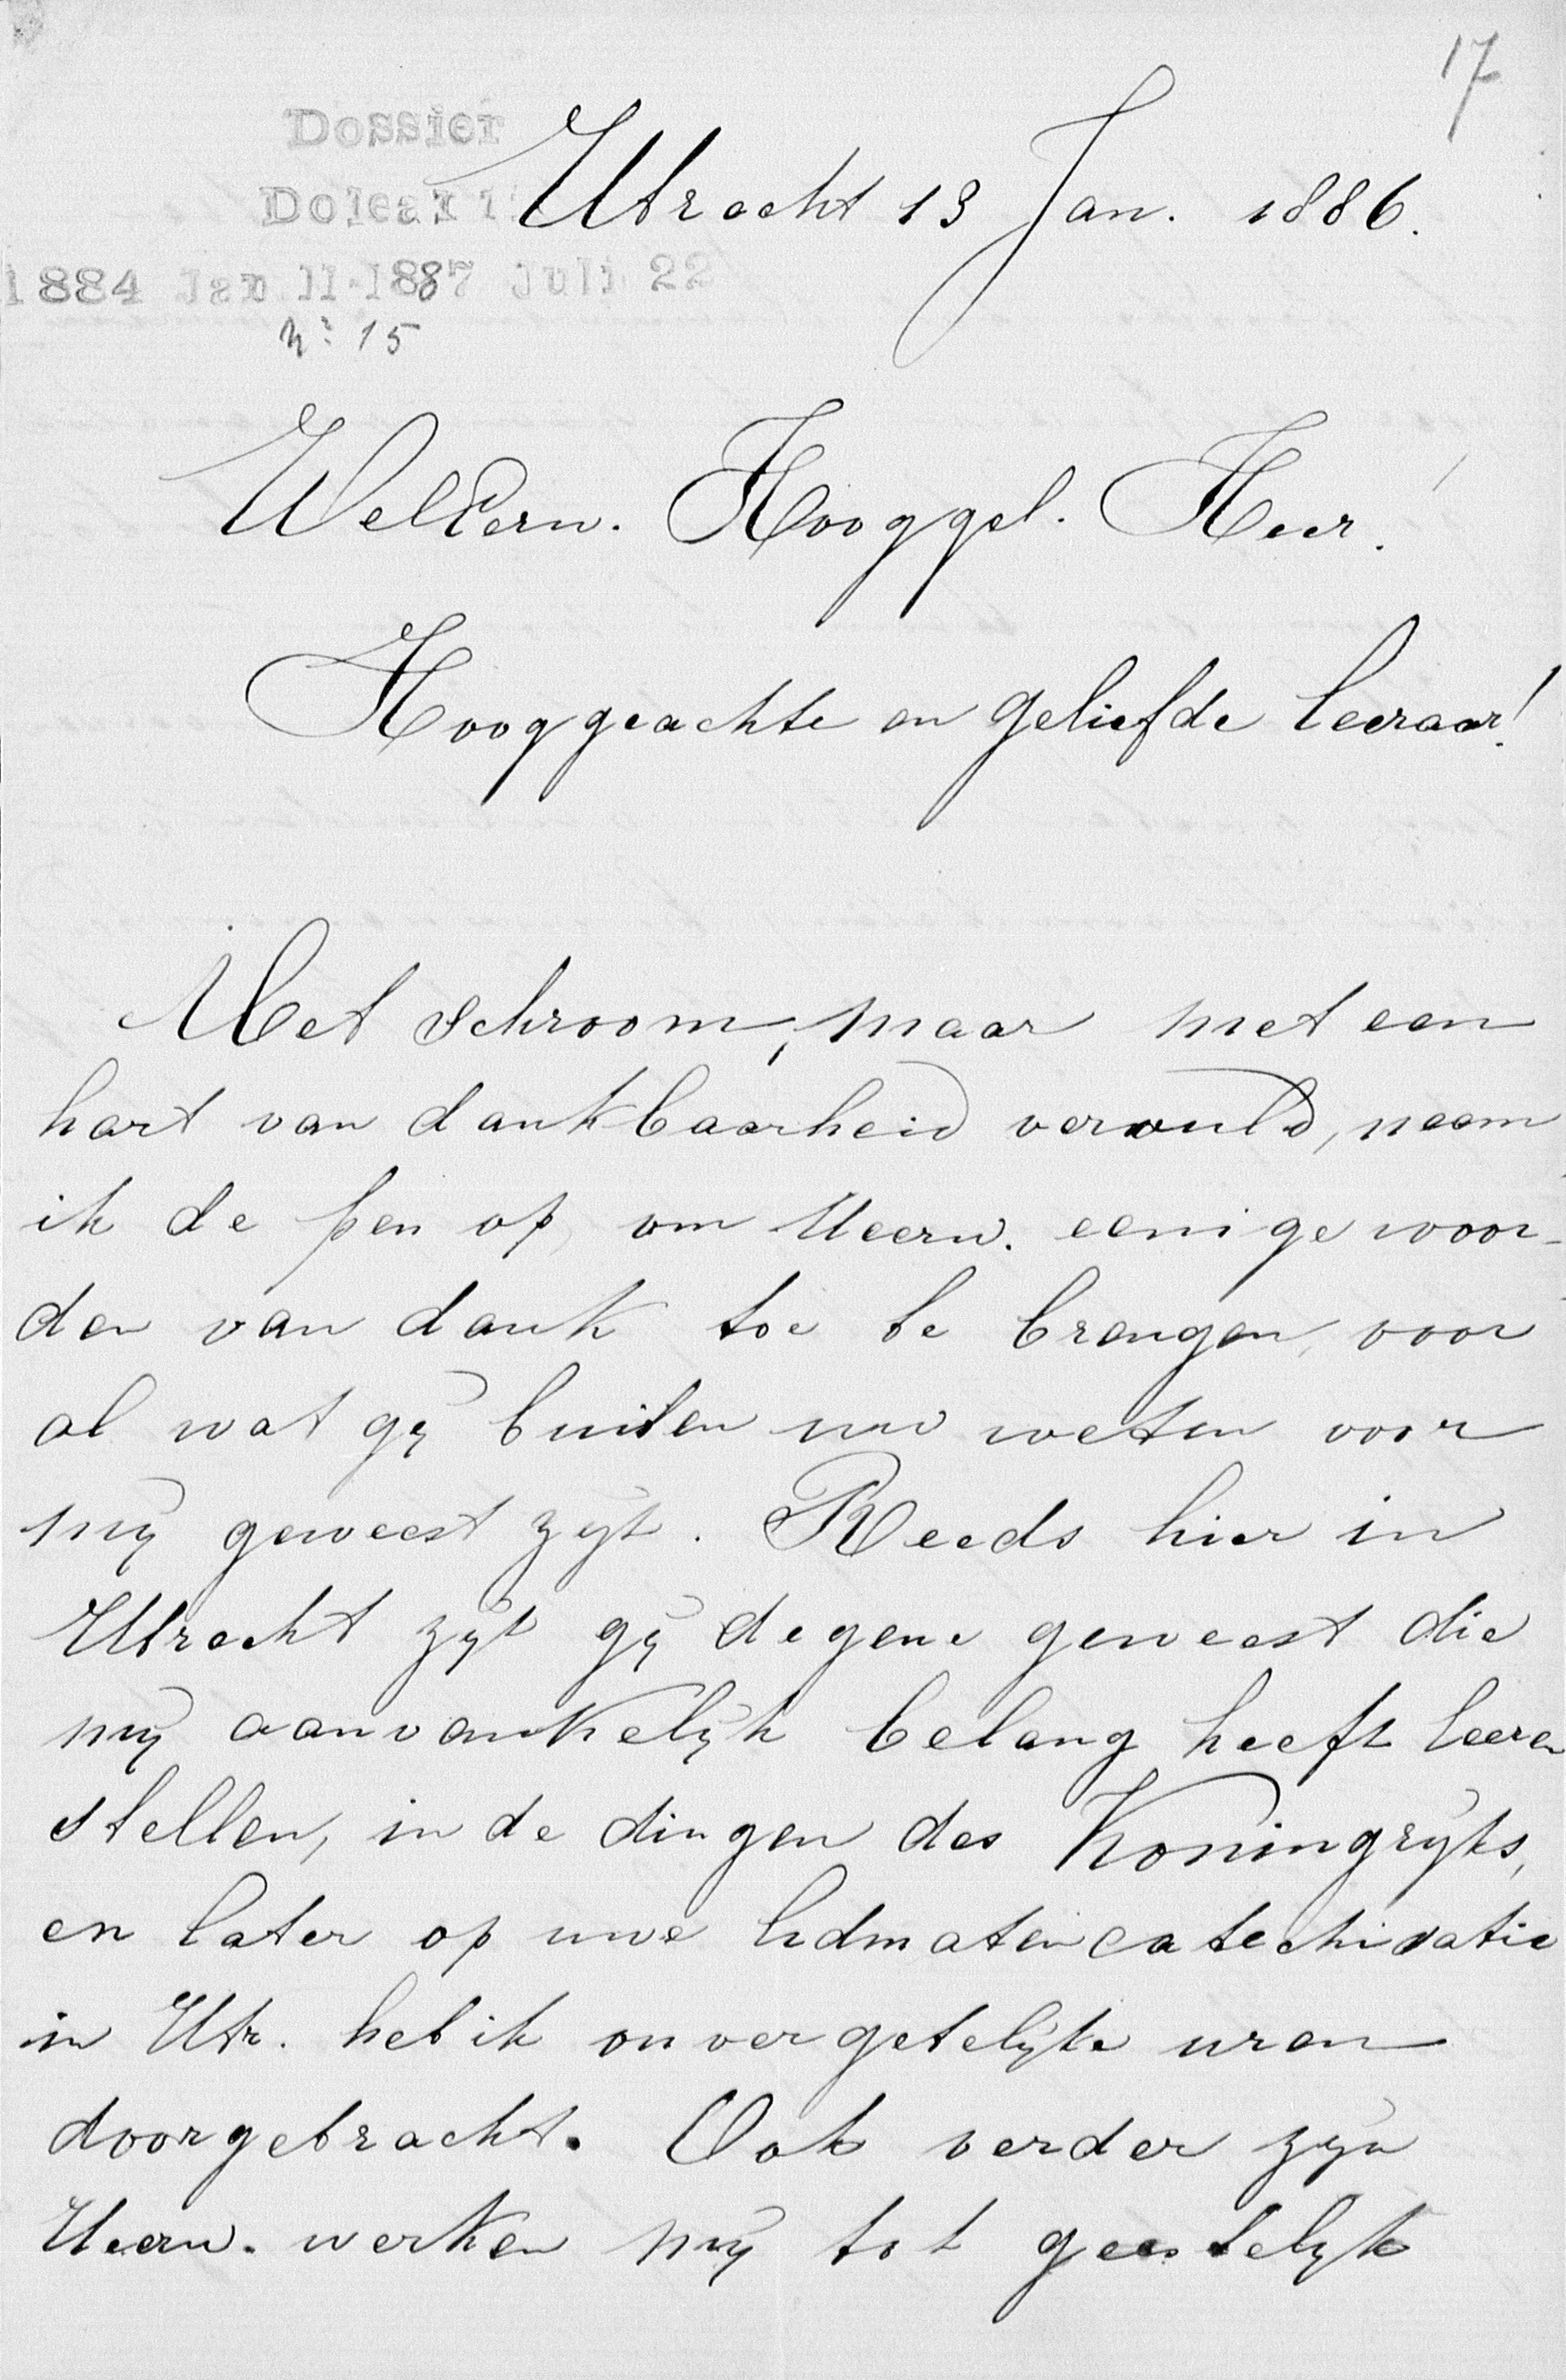 17
Dossier
Doleant
Utrecht 13 Jan. 1886.
1884 Jan 11-1887 Juli 22
No: 15
WelEerw. Hooggel. Heer.
Hooggeachte en geliefde leeraar!
Met schroom, maar met een
hart van dankbaarheid vervuld, neem
ik de pen op, om UEerw. eenige woor-
den van dank toe te brengen, voor
al wat gij buiten uw weten voor
mij geweest zijt. Reeds hier in
Utrecht zijt gij degene geweest die
mij aanvankelijk belang heeft leeren
stellen, in de dingen des Koningrijks,
en later op uwe lidmatencatechisatie
in Utr. heb ik onvergetelijke uren
doorgebracht. Ook verder zijn
UEerw. werken mij tot geestelijk